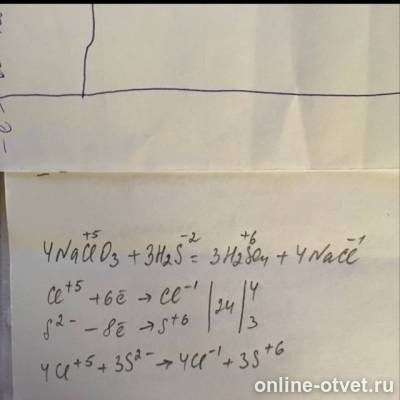 4NaClO₃ + 3H₂S⁻² = 3H₂SO₄ + 4NaCl⁻¹
+5 +6
Cl⁺⁵ + 6ē → Cl⁻¹ | 24 | 4
S²⁻ − 8ē → S⁺⁶ | 3
4Cl⁺⁵ + 3S²⁻ → 4Cl⁻¹ + 3S⁺⁶
online-otvet.ru